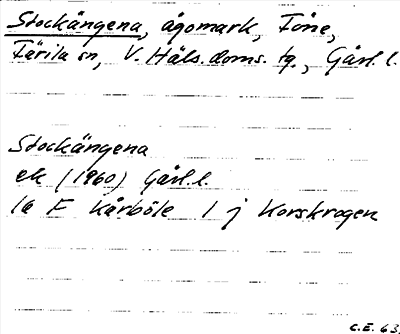 Stockängena, ägomark, Föne,
Färila sn, V. Häls. doms. tg., Gävl. l.
Stockängena
ek (1960) Gävl. l.
16 F Kårböle 1 j Korskrogen
C.E. 63